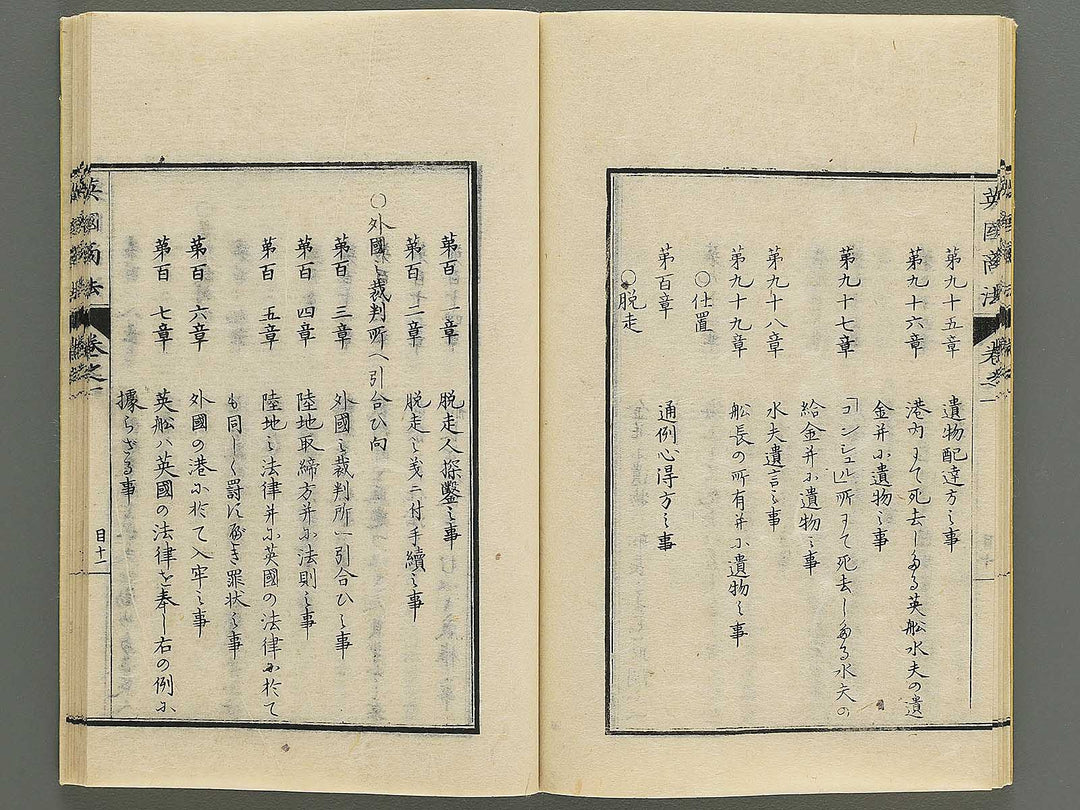 英国商法
巻之一
第九十五章 遺物配達方之事
第九十六章 港内ニて死去したる英舩水夫の遺
金并ニ遺物之事
第九十七章 「コンシュル」所ニて死去したる水夫の
給金并ニ遺物之事
第九十八章 水夫遺言之事
第九十九章 舩長の所有并ニ遺物之事
○仕置
第百章 通例心得方之事
○脱走
第百一章 脱走人探鑿之事
第百二章 脱走之義ニ付手續之事
○外國之裁判所へ引合ひ向
第百三章 外國之裁判所へ引合ひ之事
第百四章 陸地取締方并ニ法則之事
第百五章 陸地之法律并ニ英國の法律ニ於て
も同しく罰すべき罪状之事
第百六章 外國の港ニ於て入牢之事
第百七章 英舩ハ英國の法律を奉し右の例ニ
據らざる事
目十一
英國商法
巻之一